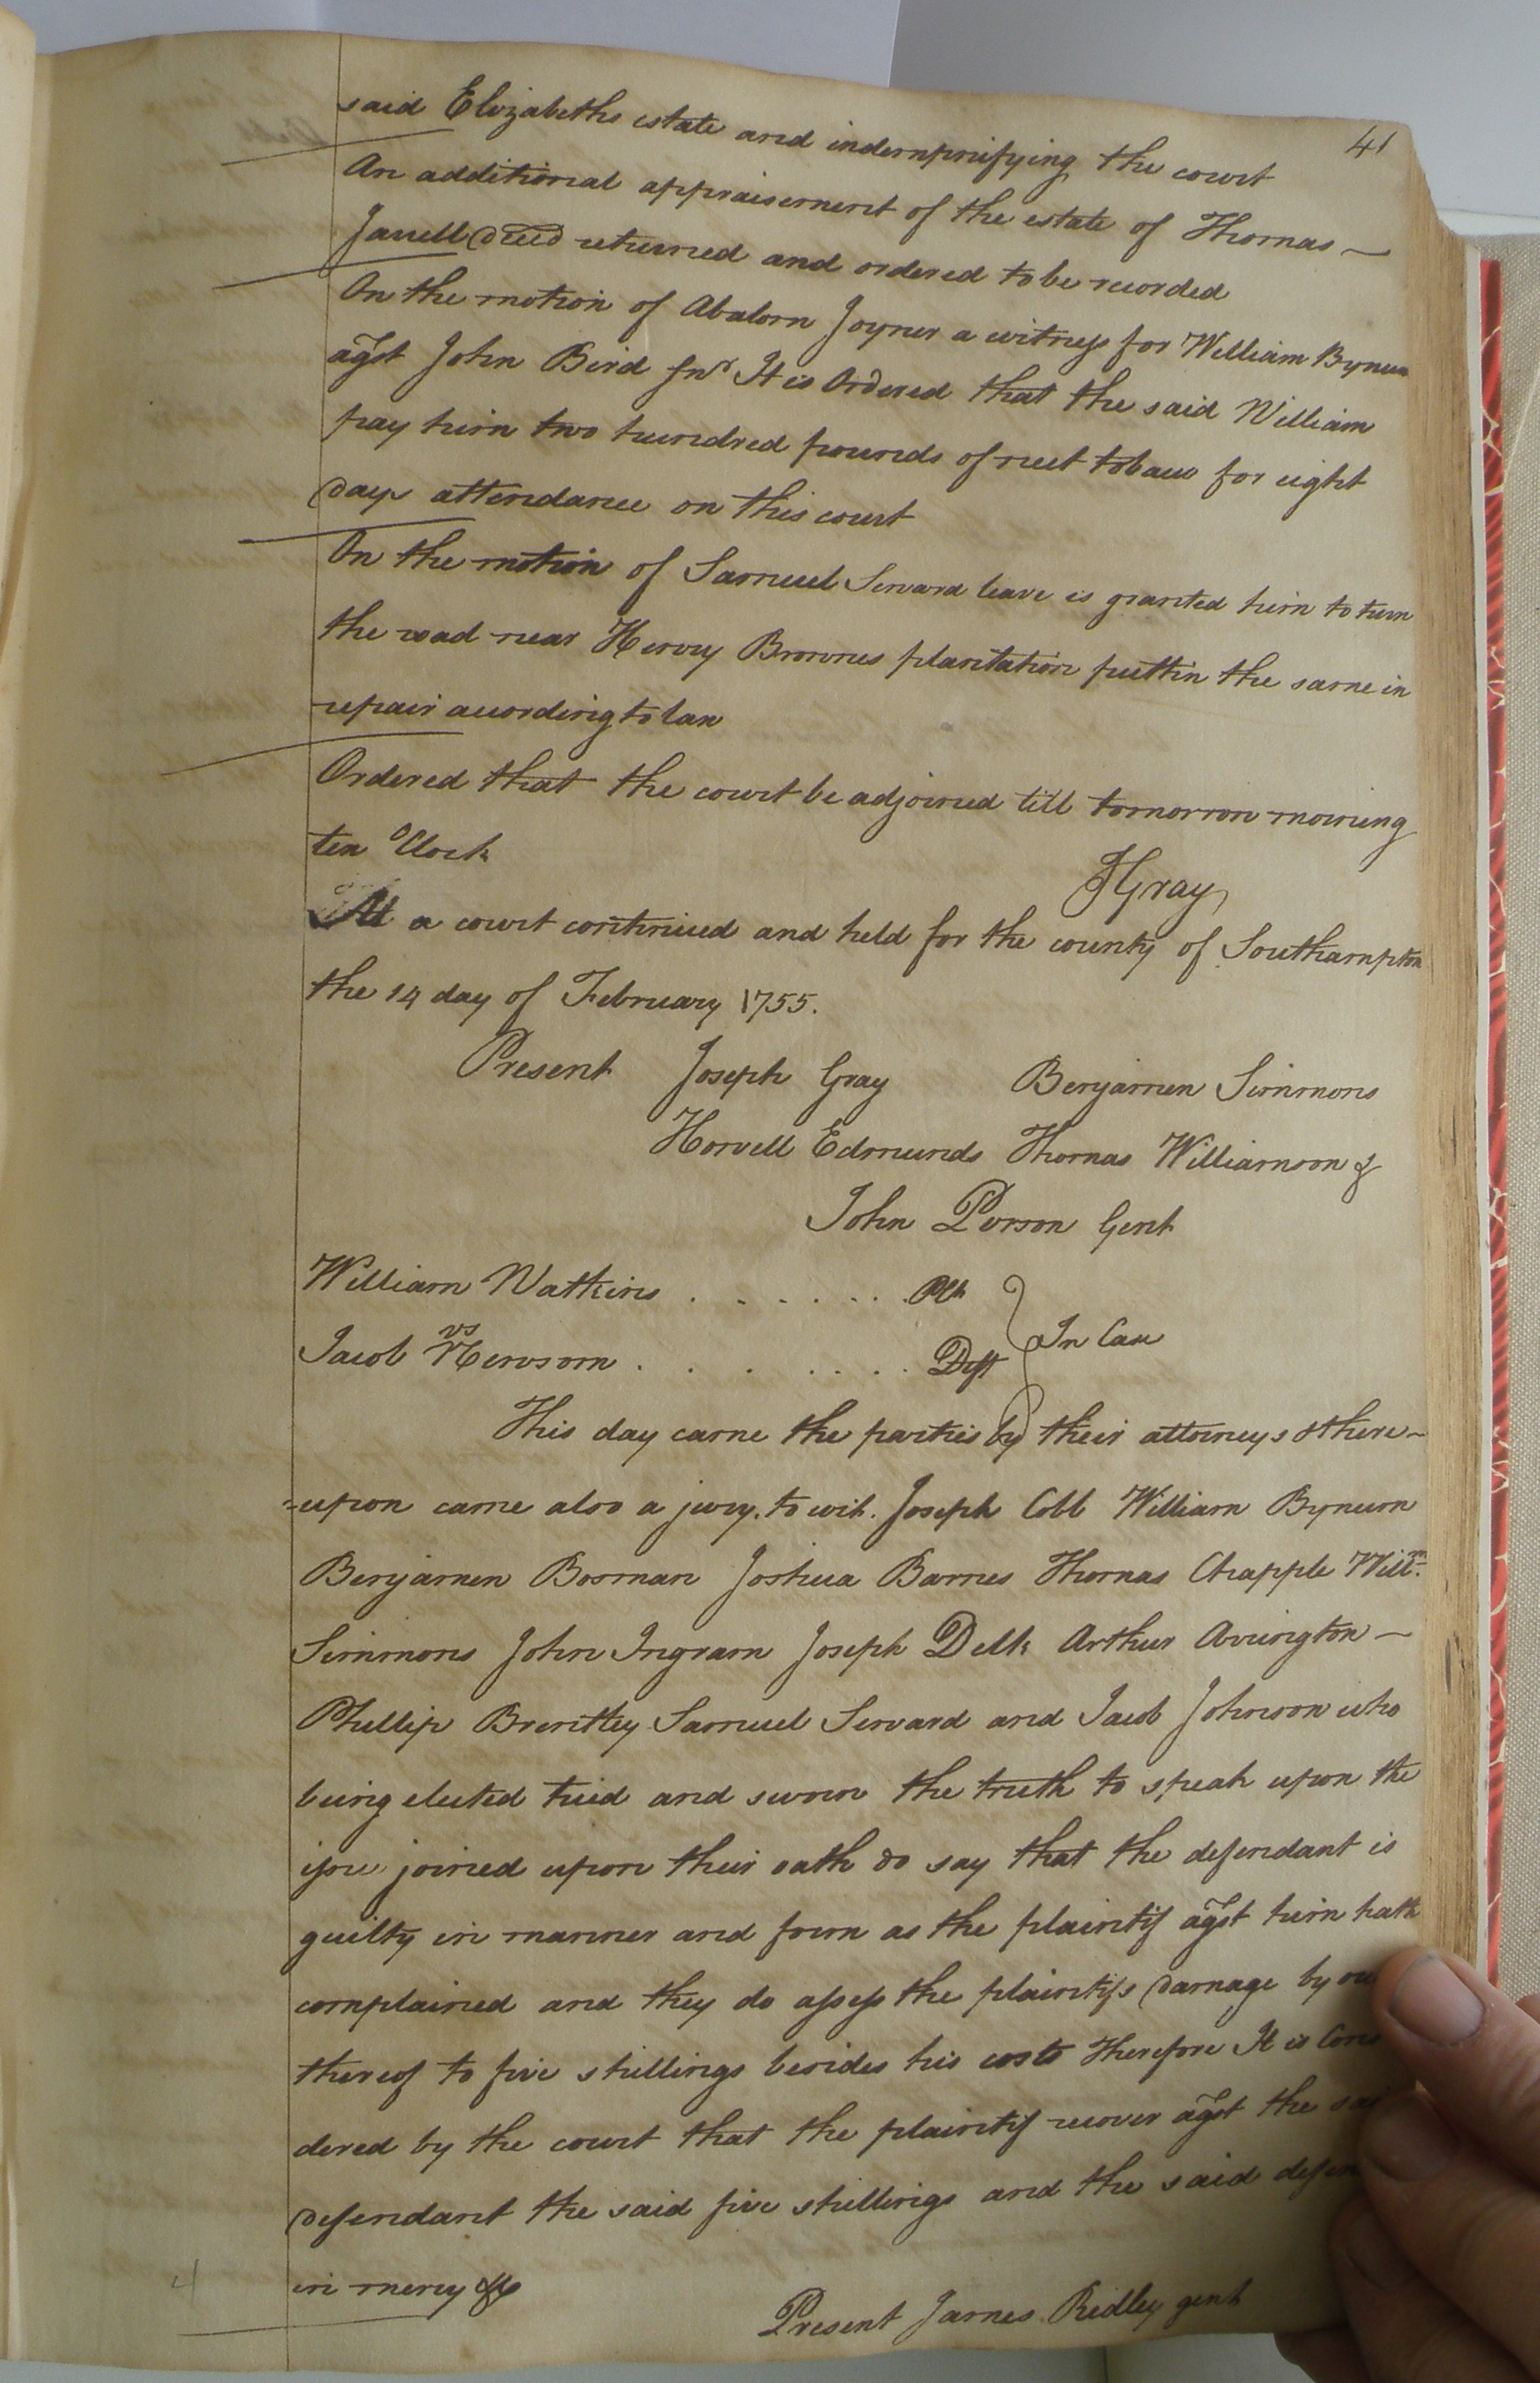 41
said Elizabeths estate and indempnifying the court
An additional appraisement of the estate of Thomas —
Jarrell Deced returned and ordered to be recorded
On the motion of Abalom Joyner a witness for William Bynum
agst John Bird Jnr It is Ordered that the said William
pay him two hundred pounds of neet tobacco for eight
days attendance on this court
On the motion of Samuel Seward leave is granted him to turn
the road near Hervy Browns plantation puttin the same in
repair according to law
Ordered that the court be adjoined till tomorrow morning
ten oClock
JGray
At a court continued and held for the county of Southampton
the 14 day of February 1755.
Present Joseph Gray Benjamen Simmons
Howell Edmunds Thomas Williamson &
John Person Gent
William Watkins . . . . . . . Plt
vs In Case
Jacob Newsom . . . . . . . Deft
This day came the parties by their attorneys & there-
-upon came also a jury. to wit. Joseph Cobb William Bynum
Benjamen Bosman Joshua Barnes Thomas Chapple Willm.
Simmons John Ingram Joseph Delk Arthur Avrington —
Phillip Brentley Samuel Seward and Jacob Johnson who
being elected tried and sworn the truth to speak upon the
issue joined upon their oath do say that the defendant is
guilty in manner and form as the plaintif agst him hath
complained and they do assess the plaintifs Damage by
thereof to five shillings besides his costs Therefore It is Cons
dered by the court that the plaintif recover agst the sai
defendant the said five shillings and the said defen
in mercy &c
4
Present James Ridley gent